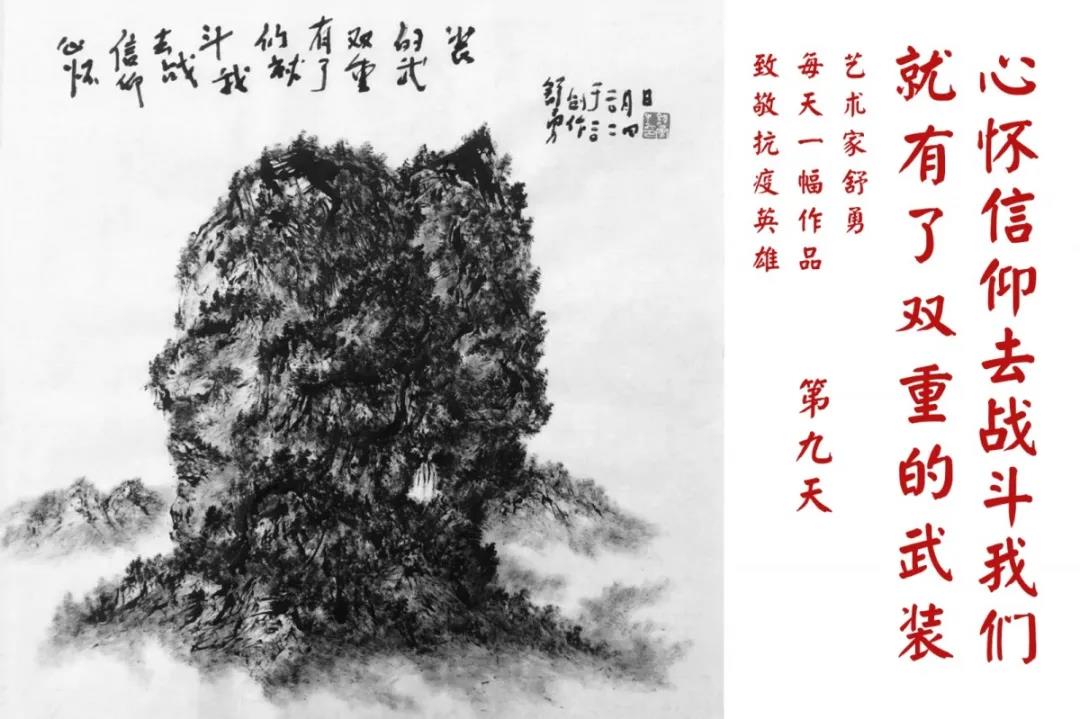 心怀
信仰
去战
斗我
们就
有了
双重
的武
装
舒勇
创作
于
心怀信仰去战斗我们
就有了双重的武装
艺术家舒勇
每天一幅作品
致敬抗疫英雄
第九天